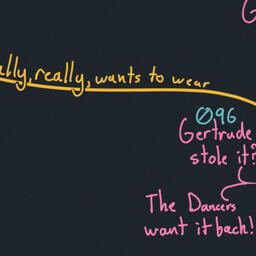 ally, really, wants to wear
096
Gertrude
stole it?
The Dancers
want it back!